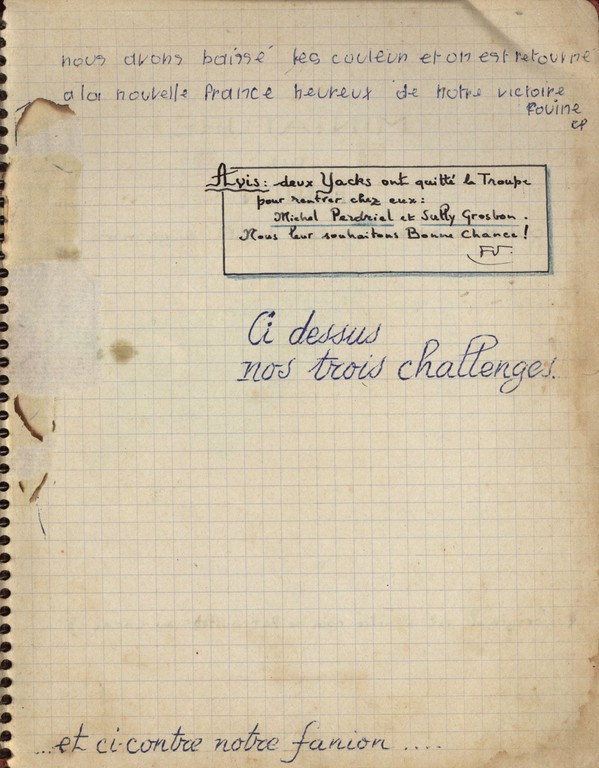 nous avons baissé les couleur et on est retourné
a la nouvelle France heureux de notre victoire
Fouine
CP
Avis: deux Yacks ont quitté la Troupe
pour rentrer chez eux:
Michel Perdriel et Sully Grosbon.
Nous leur souhaitons Bonne Chance!
Ci dessus
nos trois challenges.
...et ci-contre notre fanion ....